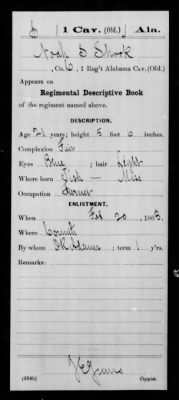 S | 1 Cav. (Old.) | Ala.
Noah S Shook
, Co. C, 1 Reg't Alabama Cav. (Old.)
Appears on
Regimental Descriptive Book
of the regiment named above.
DESCRIPTION.
Age 21 years; height 5 feet 6 inches.
Complexion Fair
Eyes Blue ; hair Light
Where born Tish - Miss
Occupation Farmer
ENLISTMENT.
When Feb 20 , 1863.
Where Corinth
By whom ; term 1 y'rs.
Remarks:
Copyist.